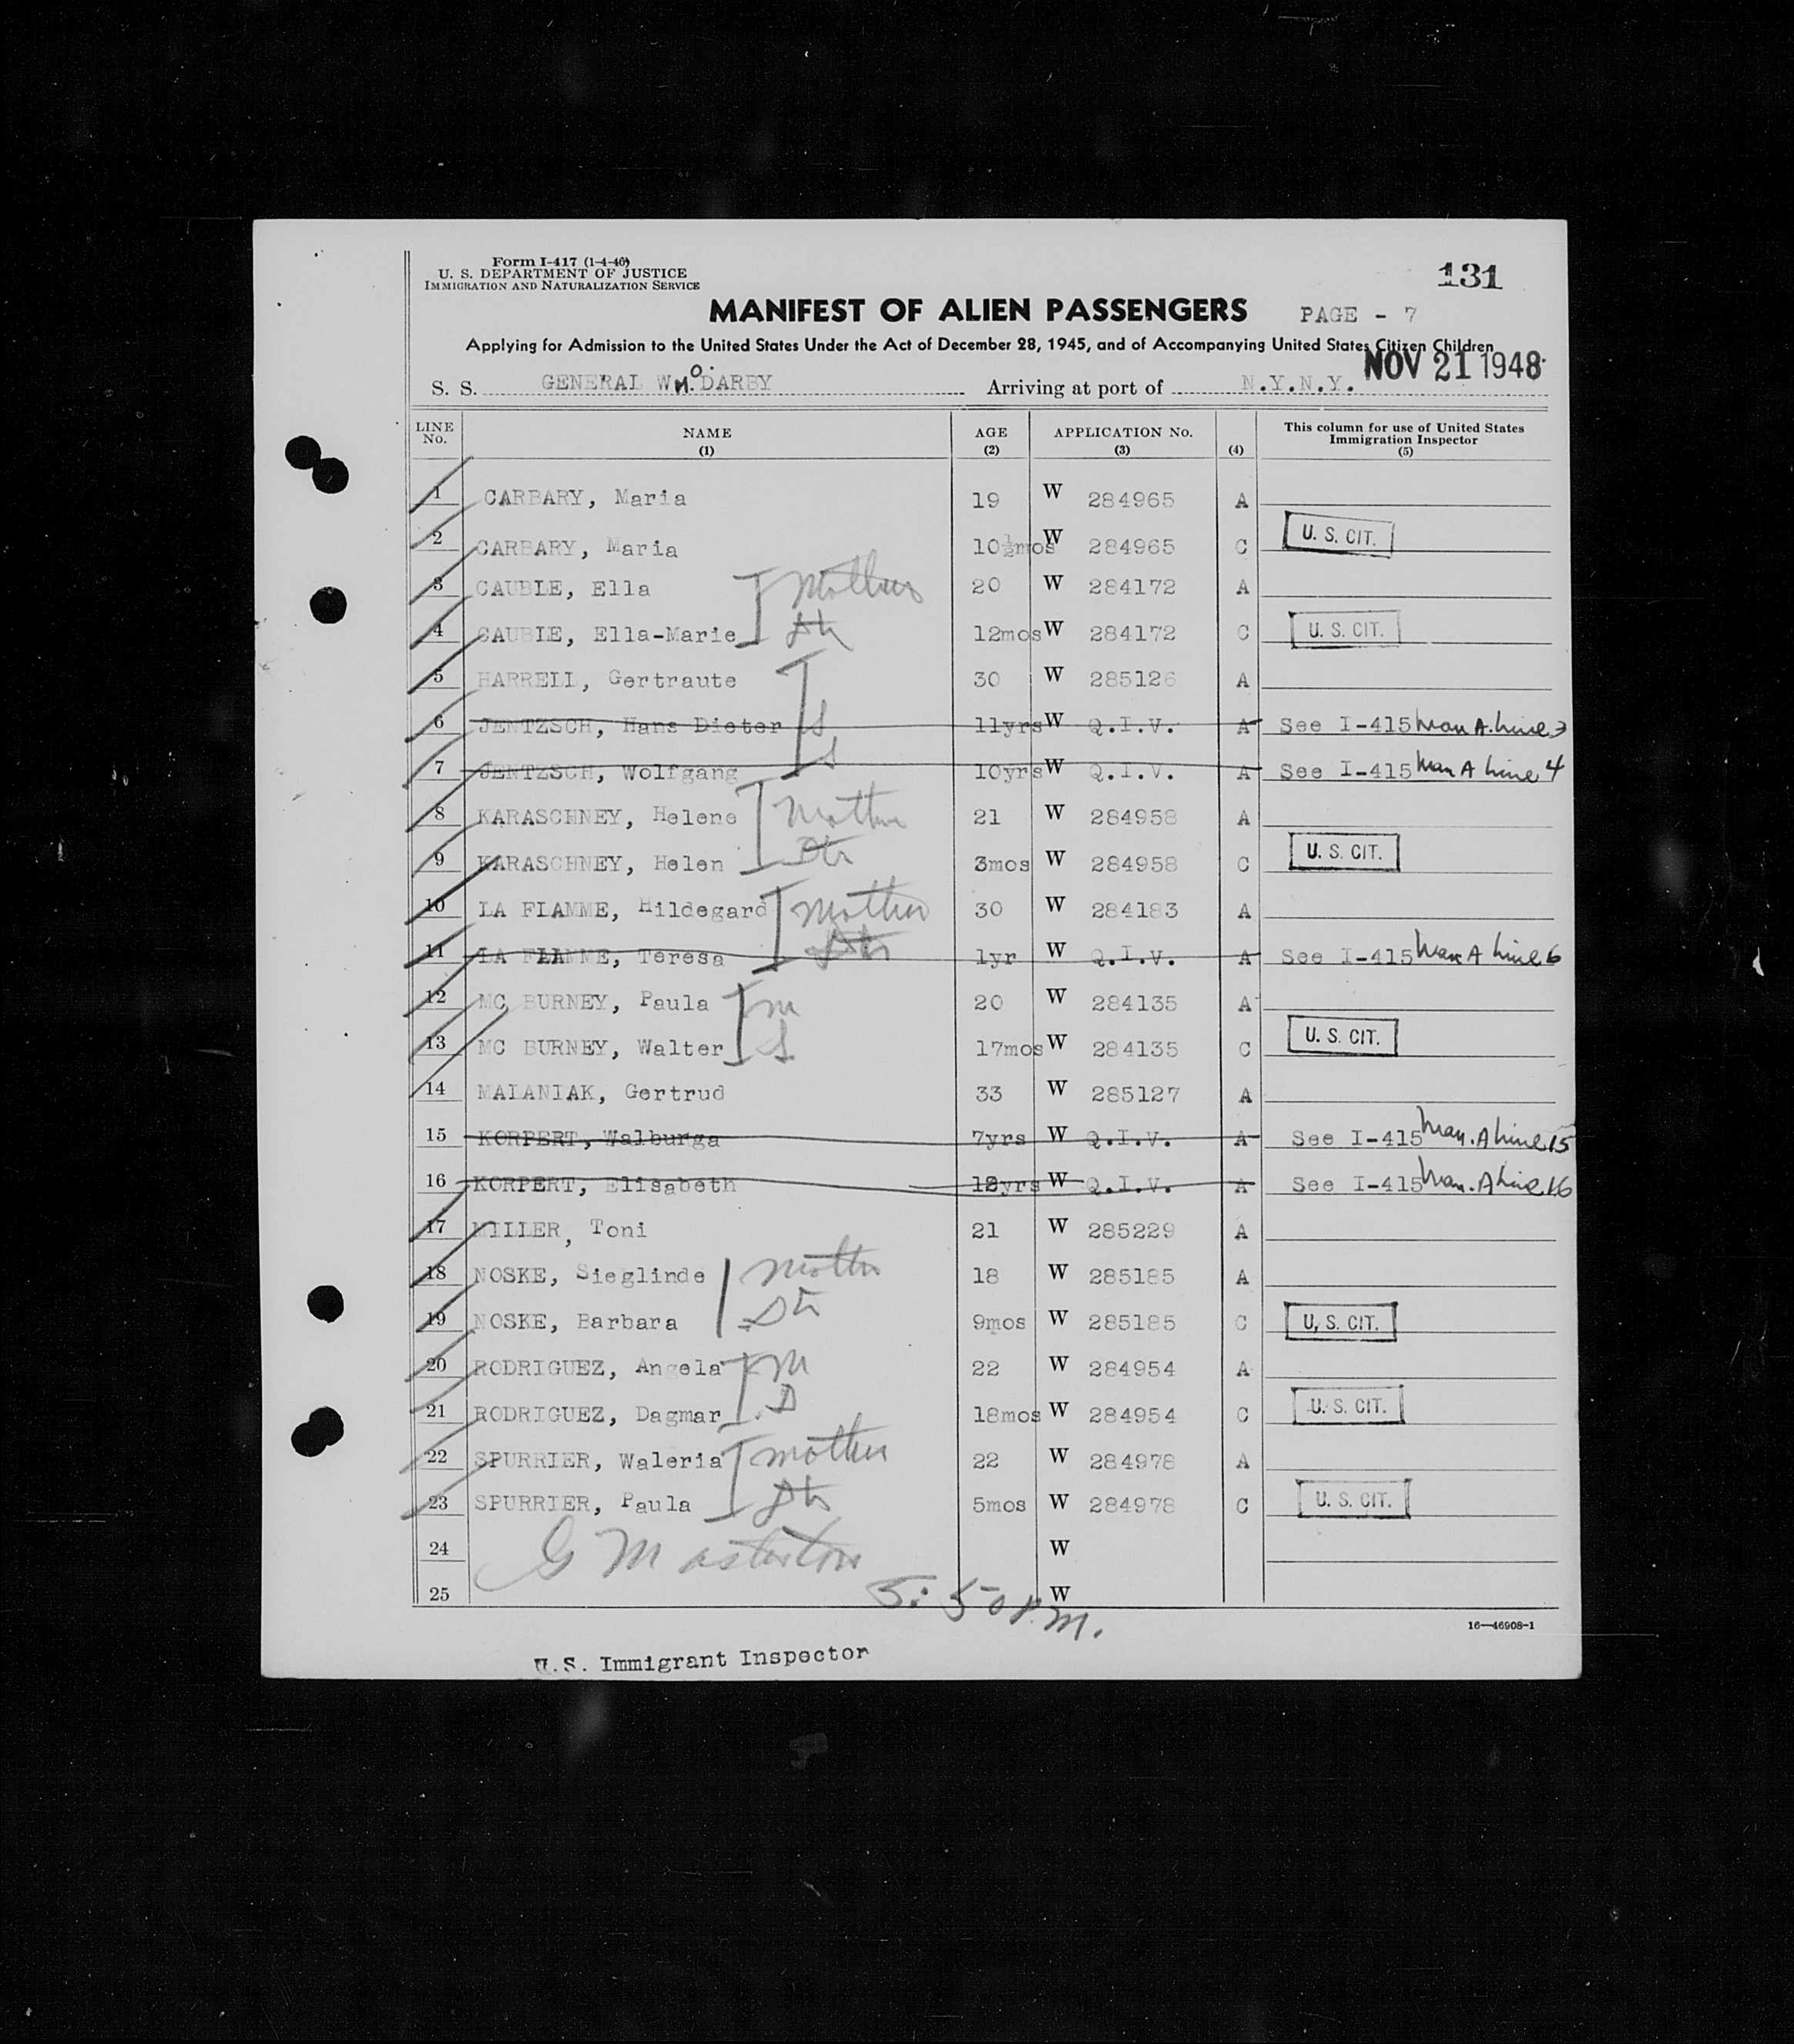 Form I-417 (1-4-46)
U. S. DEPARTMENT OF JUSTICE
IMMIGRATION AND NATURALIZATION SERVICE
131
MANIFEST OF ALIEN PASSENGERS PAGE - 7
Applying for Admission to the United States Under the Act of December 28, 1945, and of Accompanying United States Citizen Children
NOV 21 1948
S. S. GENERAL WM. O. DARBY Arriving at port of N.Y.N.Y.
LINE No. NAME (1) AGE (2) APPLICATION No. (3) (4) This column for use of United States Immigration Inspector (5)
1 CARBARY, Maria 19 W 284965 A
2 CARBARY, Maria 10½mos W 284965 C U. S. CIT.
3 CAUBLE, Ella Mother 20 W 284172 A
4 CAUBIE, Ella-Marie Dtr 12mos W 284172 C U. S. CIT.
5 HARRELL, Gertraute 30 W 285126 A
6 JENTZSCH, Hans Dieter S 11yrs W Q.I.V. A See I-415 Man A. Line 3
7 JENTZSCH, Wolfgang S 10yrs W Q.I.V. A See I-415 Man A Line 4
8 KARASCHNEY, Helene Mother 21 W 284958 A
9 KARASCHNEY, Helen Dtr 3mos W 284958 C U. S. CIT.
10 LA FLAMME, Hildegard Mother 30 W 284183 A
11 LA FLAMME, Teresa Dtr 1yr W Q.I.V. A See I-415 Man A Line 6
12 MC BURNEY, Paula M 20 W 284135 A
13 MC BURNEY, Walter S 17mos W 284135 C U. S. CIT.
14 MALANIAK, Gertrud 33 W 285127 A
15 KORPERT, Walburga 7yrs W Q.I.V. A See I-415 Man. A Line 15
16 KORPERT, Elisabeth W Q.I.V. A See I-415 Man. A Line 16
17 MILLER, Toni 21 W 285229 A
18 NOSKE, Sieglinde Mother 18 W 285185 A
19 NOSKE, Barbara Dtr 9mos W 285185 C U. S. CIT.
20 RODRIGUEZ, Angela M 22 W 284954 A
21 RODRIGUEZ, Dagmar D 18mos W 284954 C U. S. CIT.
22 SPURRIER, Waleria Mother 22 W 284978 A
23 SPURRIER, Paula Dtr 5mos W 284978 C U. S. CIT.
24 G Masterton W
25 5:50 P.M. W
16—46908-1
U.S. Immigrant Inspector